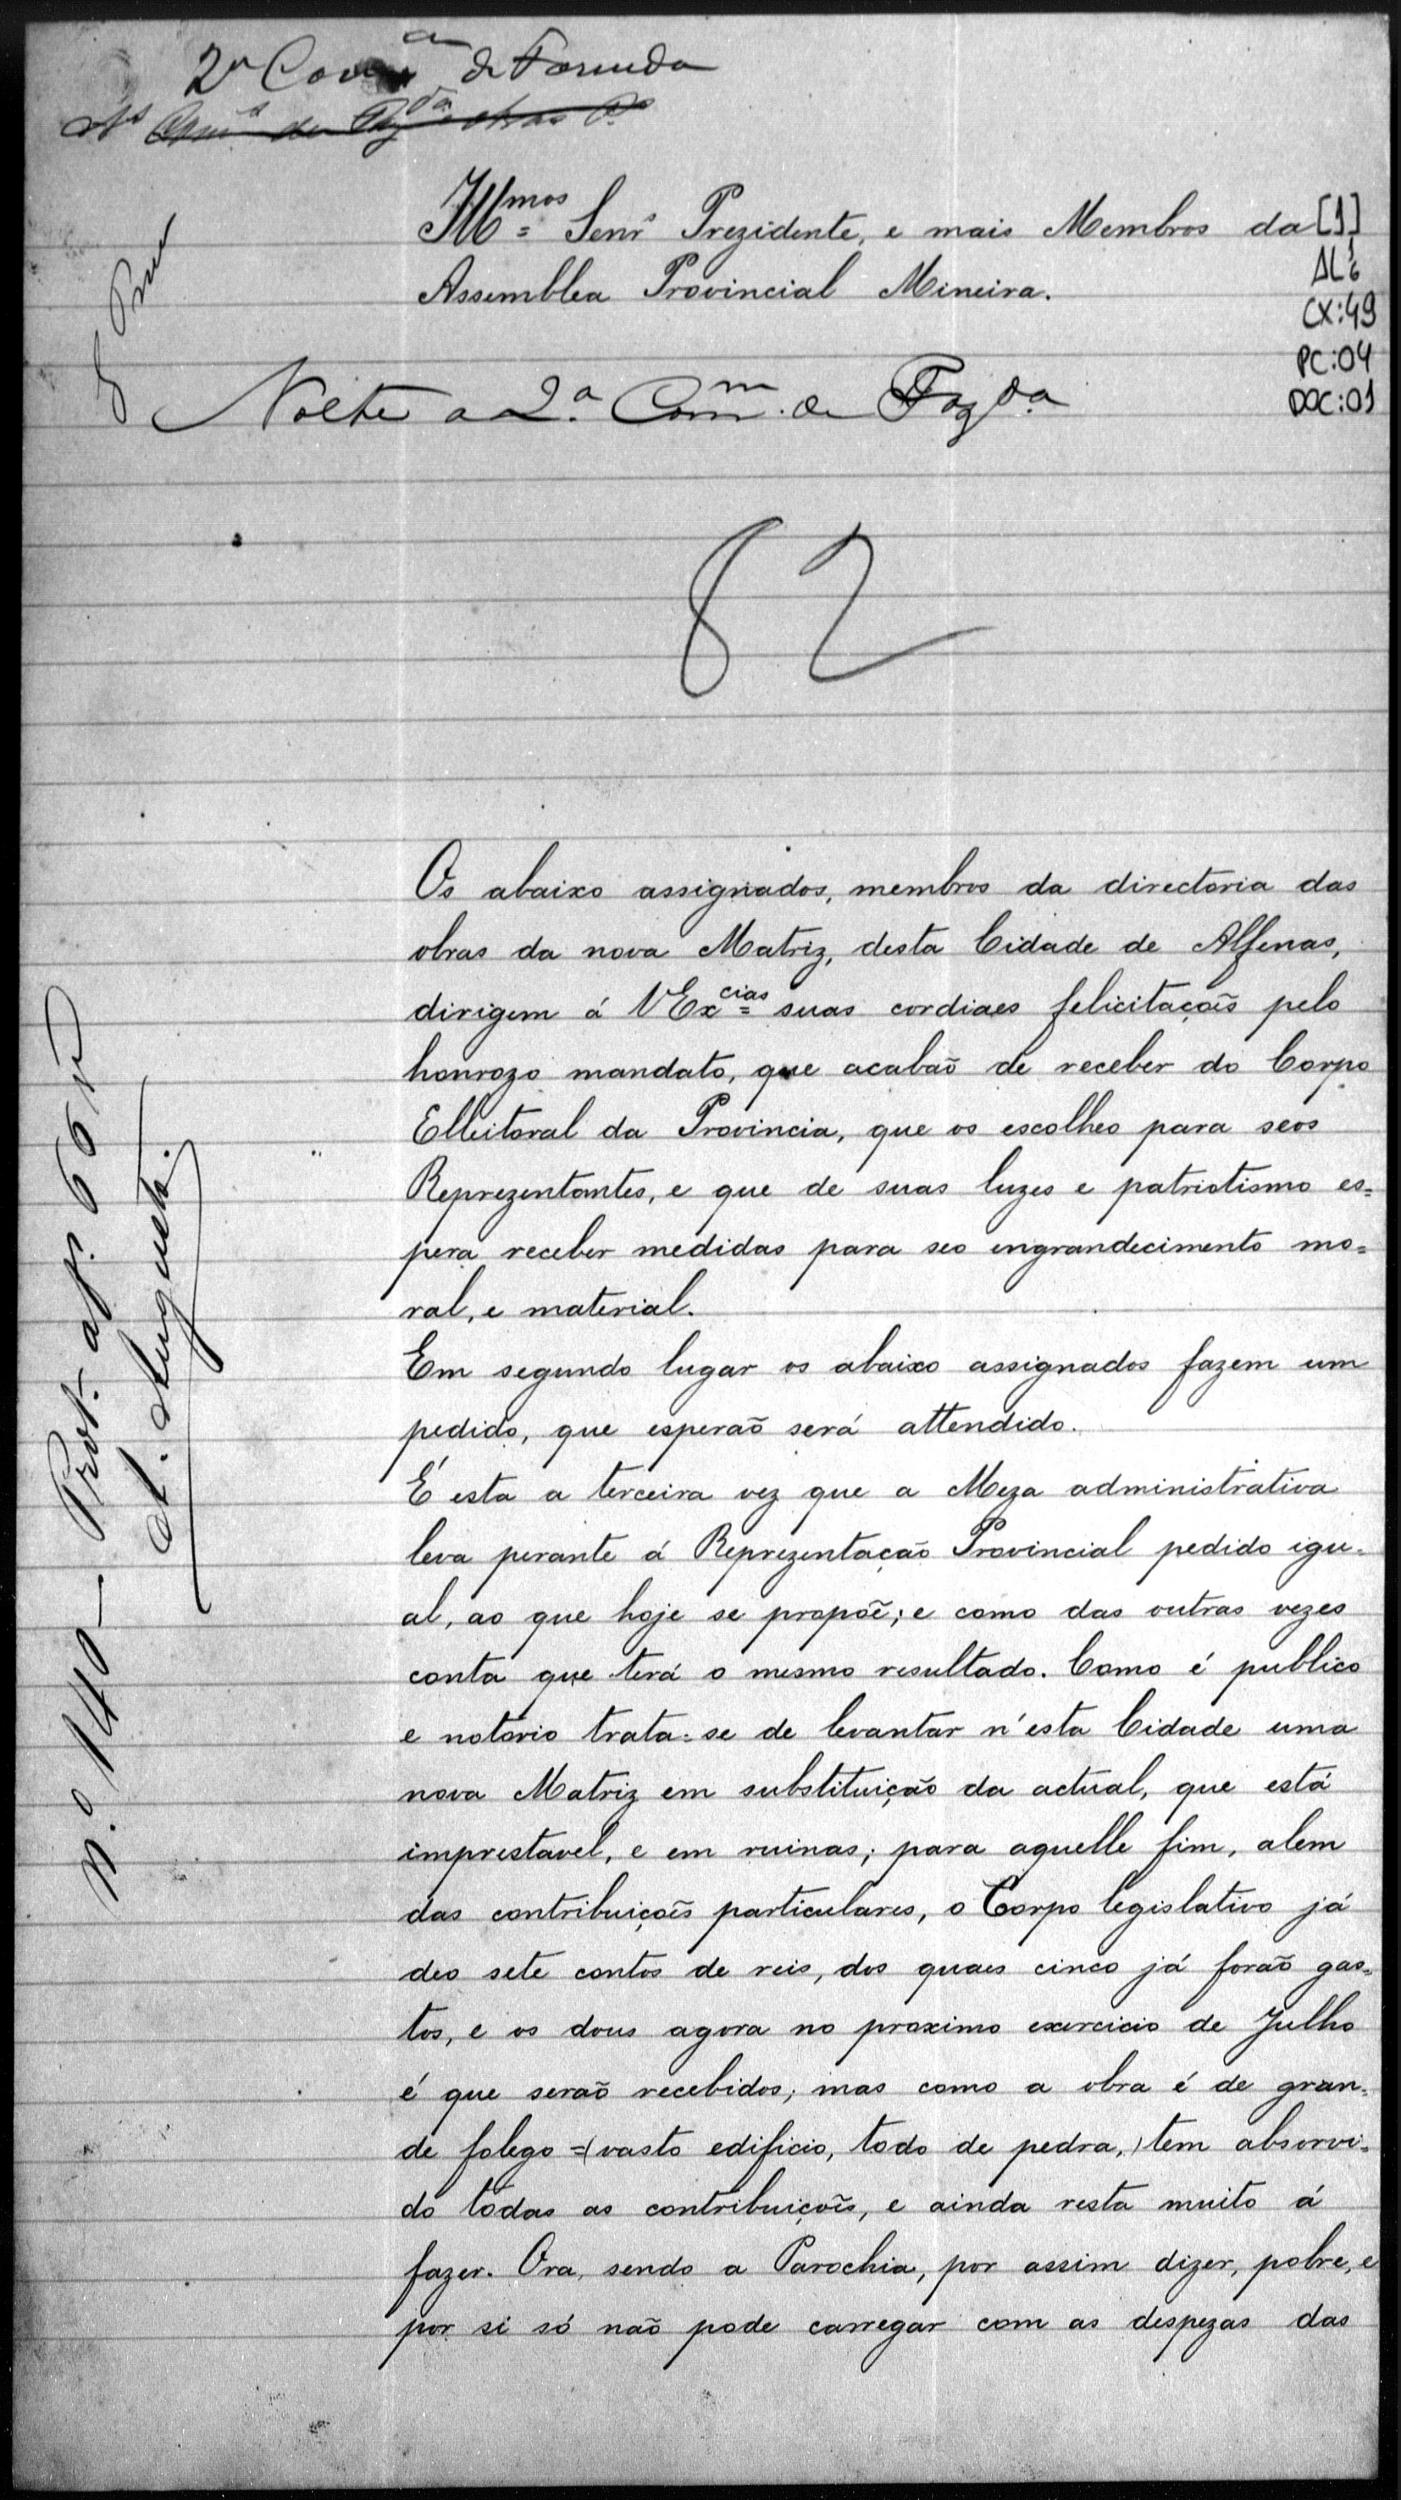 2ª Comm.am de Fazenda
Illmos Senrs Prezidente, e mais Membros da
Assemblea Provincial Mineira.
[1]
AL 1/6
CX:49
PC:04
DOC:01
Volte a 2.ª Comm. de Fazda
82
Os abaixo assignados, membros da directoria das
obras da nova Matriz, desta Cidade de Alfenas,
dirigem á VExcias suas cordiaes felicitaçoẽs pelo
honrozo mandato, que acabaõ de receber do Corpo
Elleitoral da Provincia, que os escolheo para seos
Reprezentantes, e que de suas luzes e patriotismo es=
pera receber medidas para seo engrandecimento mo=
ral, e material.
Em segundo lugar os abaixo assignados fazem um
pedido, que esperaõ será attendido.
É esta a terceira vez que a Meza administrativa
leva perante á Reprezentaçaõ Provincial pedido igu=
al, ao que hoje se propoẽ; e como das outras vezes
conta que terá o mesmo resultado. Como é publico
e notorio trata-se de levantar n'esta Cidade uma
nova Matriz em substituiçaõ da actual, que está
imprestavel, e em ruinas; para aquelle fim, alem
das contribuiçoẽs particulares, o Corpo legislativo já
deo sete contos de reis, dos quaes cinco já foraõ gas=
tos, e os dous agora no proximo exercicio de Julho
é que seraõ recebidos; mas como a obra é de gran=
de folego =(vasto edificio, todo de pedra,) tem absorvi=
do todas as contribuiçoẽs, e ainda resta muito á
fazer. Ora, sendo a Parochia, por assim dizer, pobre, e
por si só naõ pode carregar com as despezas das
N.º 140 - Prot. a f. 66 v
A. Augusto.